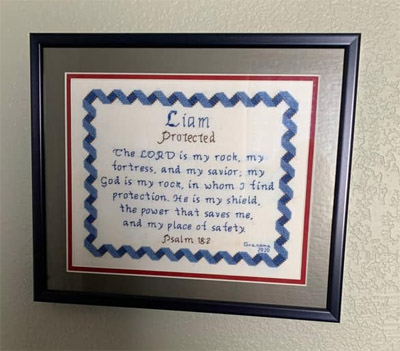 Liam
Protected
The LORD is my rock, my
fortress, and my savior; my
God is my rock, in whom I find
protection. He is my shield,
the power that saves me,
and my place of safety.
Psalm 18:2
Grandma
2020